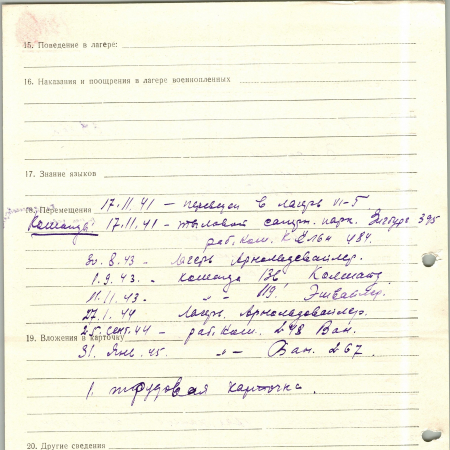 15. Поведение в лагере:
16. Наказания и поощрения в лагере военнопленных
17. Знание языков
18. Перемещения 17.11.41 – перевед. в лагерь VI-Г
Команда: 17.11.41 – тыловой парк. 395
раб. ком. Кёльн 484.
30.8.43 – лагерь Арнольдсвайлер.
1.9.43. – команда 136
11.11.43. – " – 119. Эшвайлер.
27.1.44 лагерь Арнольдсвайлер.
25. сент. 44 – раб. ком. 248 Ван.
19. Вложения в карточку
31. Янв. 45. " – Ван. 267.
1. трудовая карточка.
20. Другие сведения